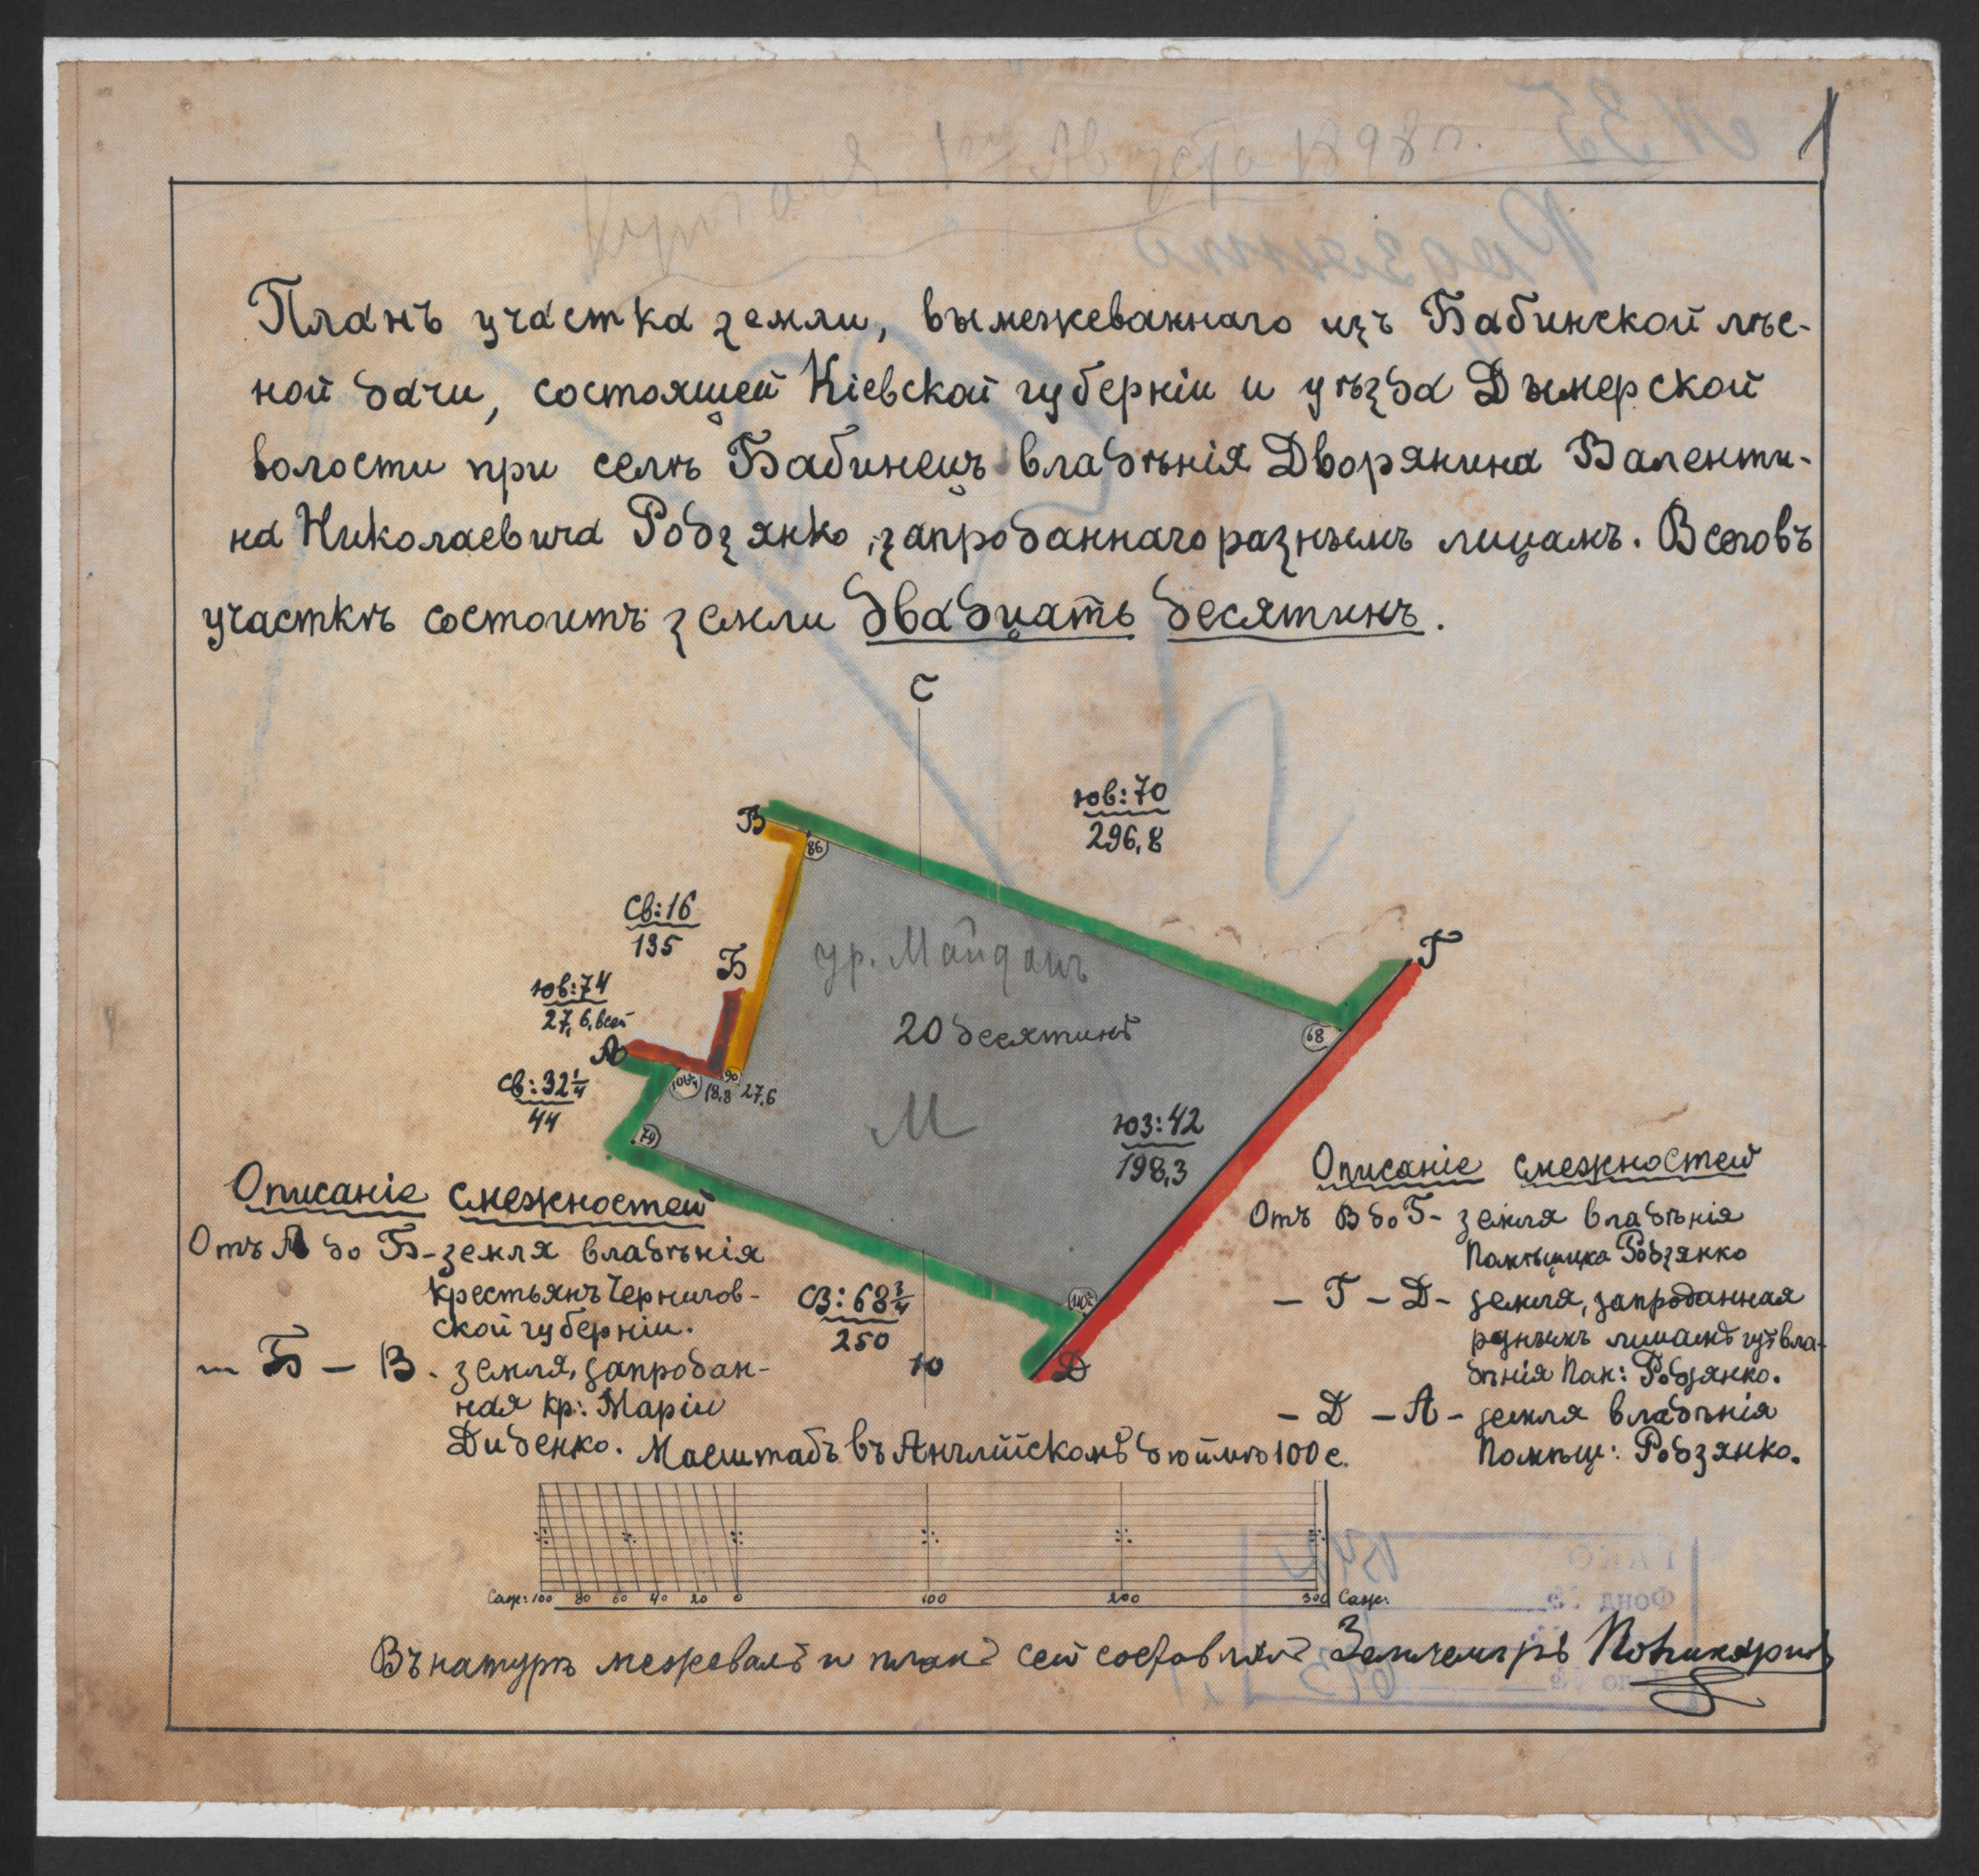 1
1го Августа 1898 г.
Планъ участка земли, вымежеваннаго изъ Бабинской лѣс-
ной дачи, состоящей Кіевской губерніи и уѣзда Дымерской
волости при селѣ Бабинецъ владѣнія Дворянина Валенти-
на Николаевича Родзянко, запроданнаго разнымъ лицамъ. Всего въ
участкѣ состоитъ земли двадцать десятинъ.
С
В
юв:70
296,8
86
св:16
135
Б
Г
ур. Майданъ
юв:74
27,6, всей
20 десятинъ
68
А
св:32 1/4
44
106 1/4
18,8
90
27,6
М
юз:42
198,3
79
Описаніе смежностей
Отъ А до Б - земля владѣнія
крестьянъ Чернигов-
ской губерніи.
— Б — В - земля, запродан-
ная кр: Маріи
Диденко.
сз:68 3/4
250
Ю
Д
Описаніе смежностей
Отъ В до Г - земля владѣнія
Помѣщика Родзянко
— Г — Д - земля, запроданная
разнымъ лицамъ изъ вла-
дѣнія Пом: Родзянко.
— Д — А - земля владѣнія
Помѣщ: Родзянко.
Масштабъ въ Англійскомъ дюймѣ 100 с.
Саж: 100 80 60 40 20 0 100 200 300 Саж:
Въ натурѣ межевалъ и планъ сей составлялъ Землемѣръ